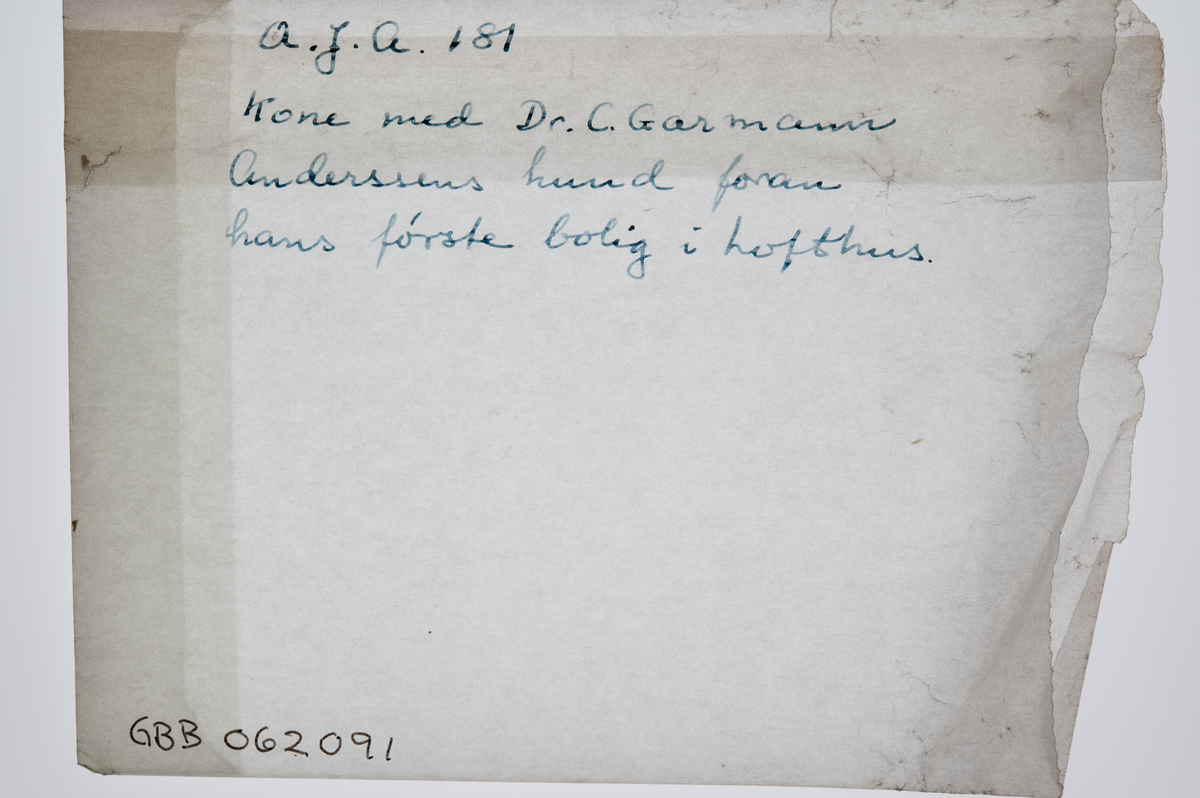 A.J.A. 181
Kone med Dr. C. Garmann
Anderssens hund foran
hans første bolig i Lofthus.
GBB 062091